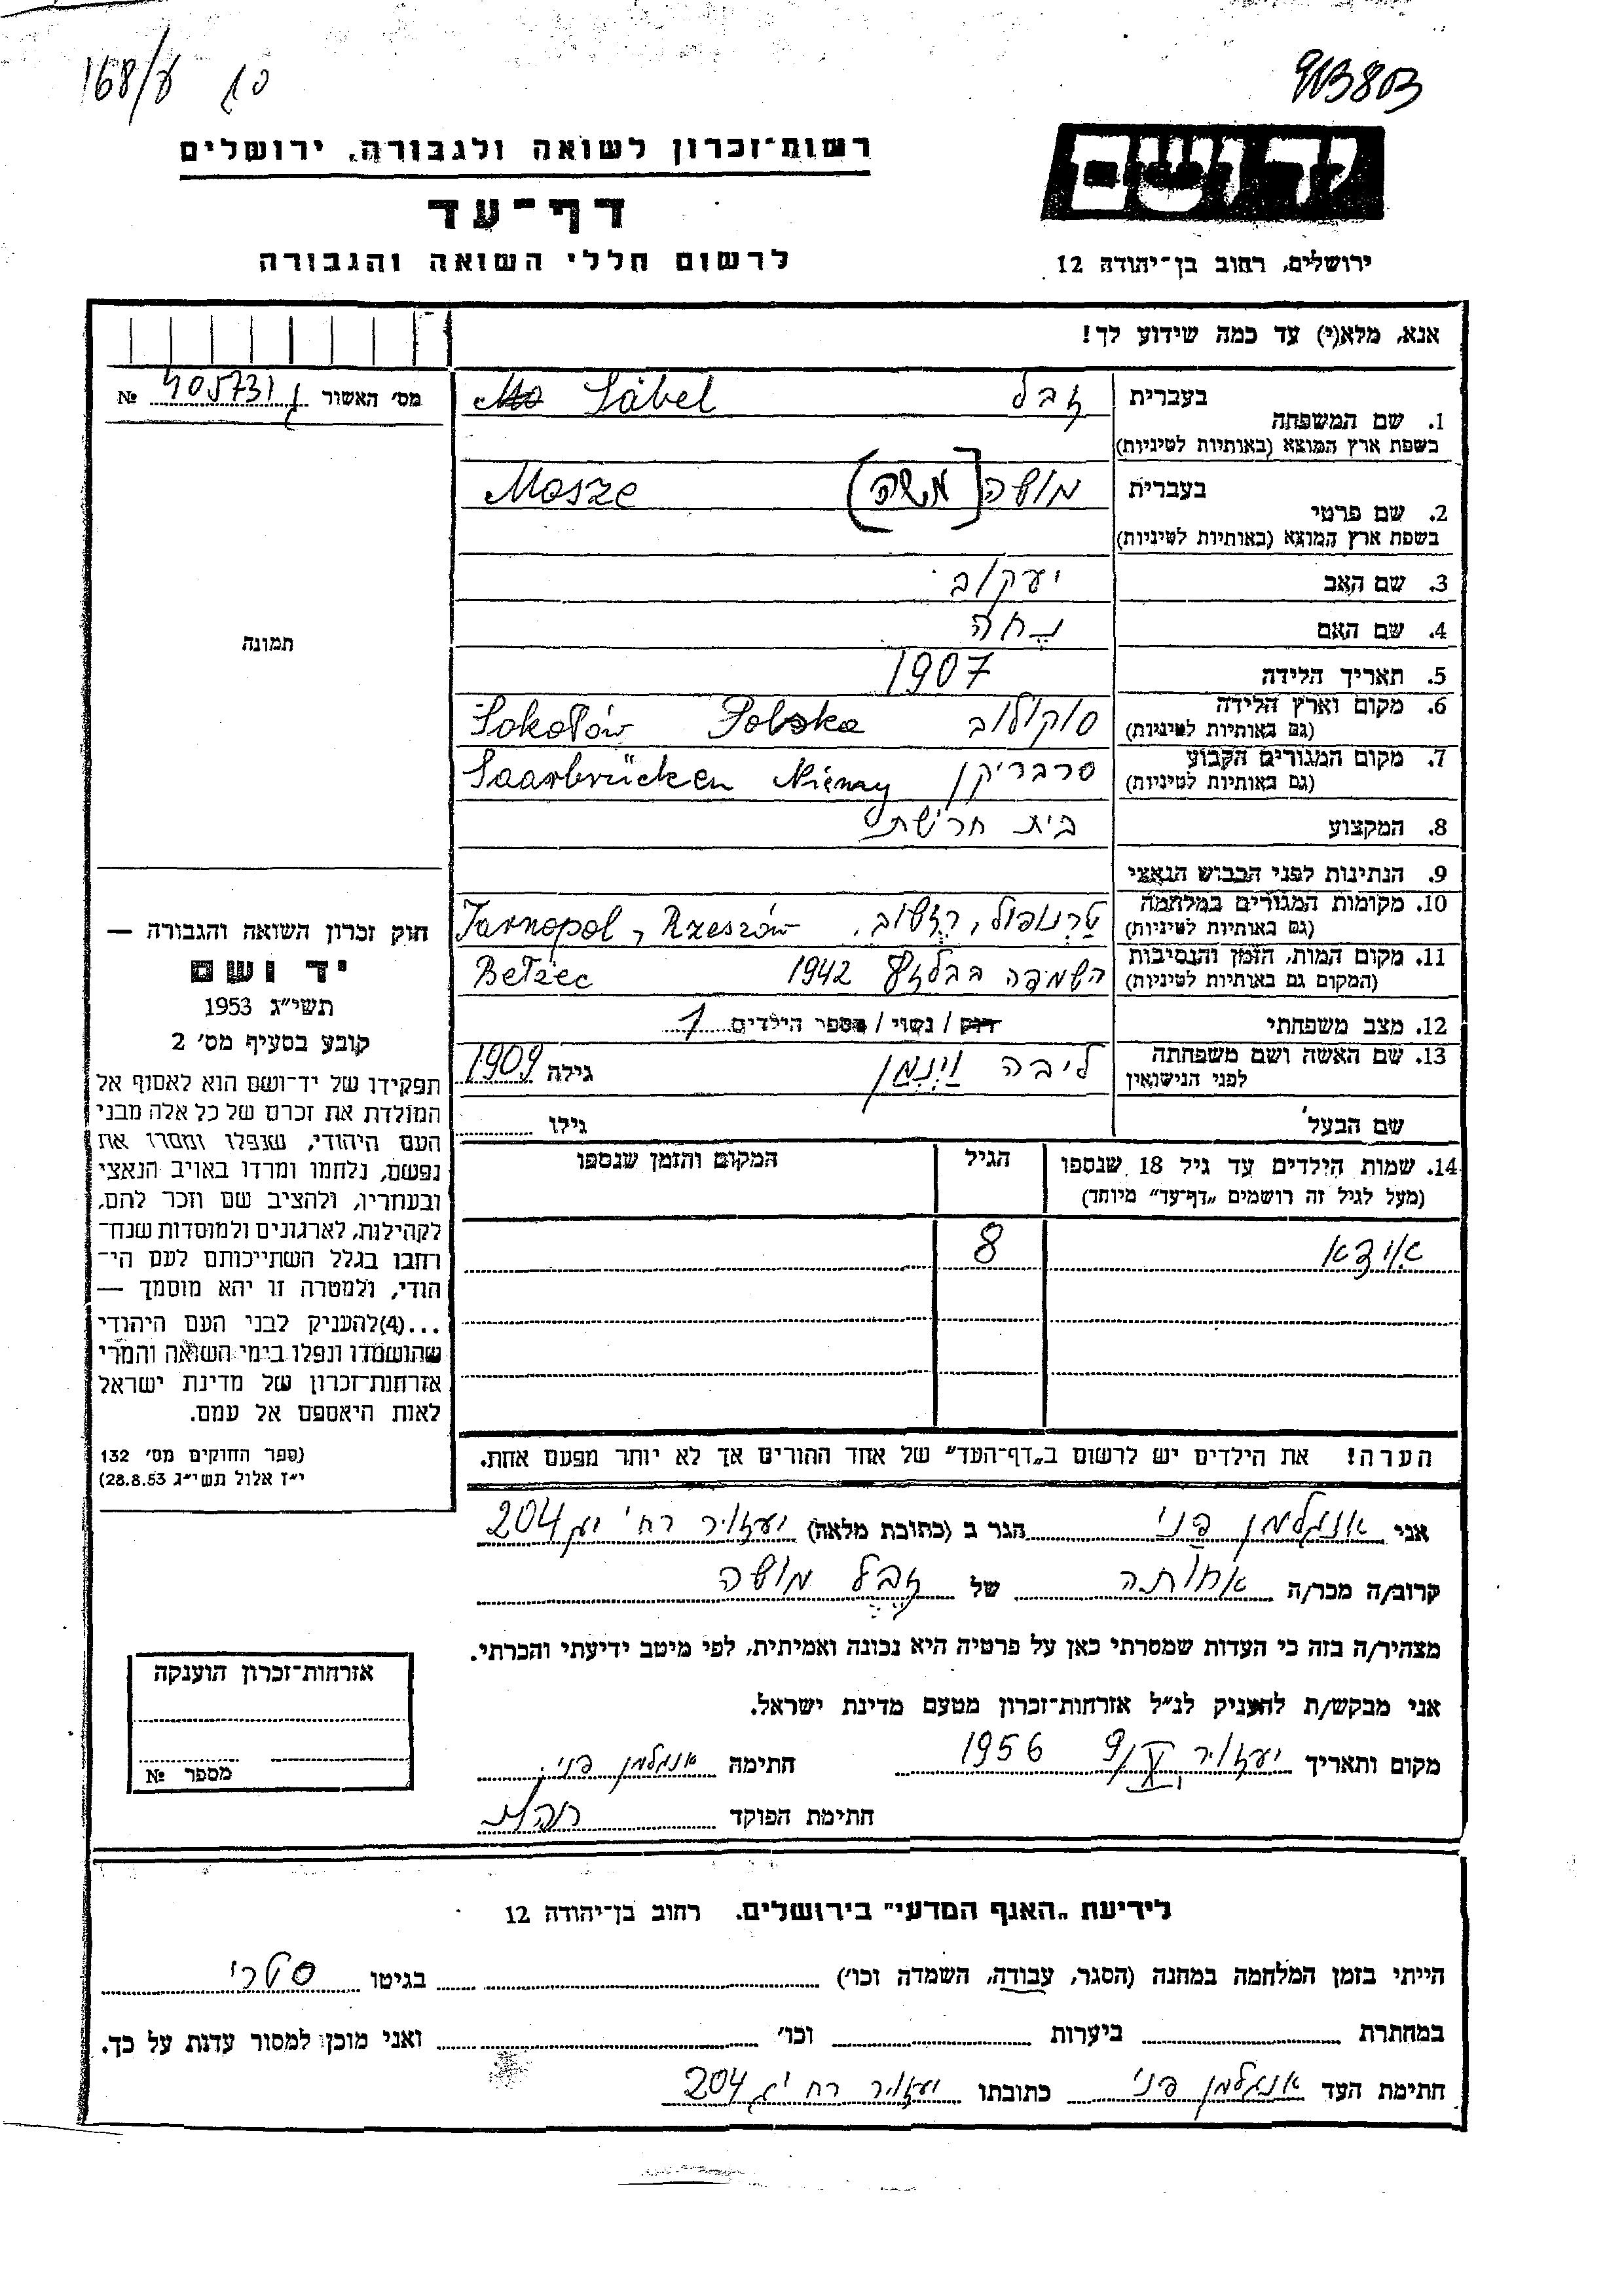 168/ע
913803
יד ושם
רשות־זכרון לשואה ולגבורה, ירושלים
דף־עד
לרשום חללי השואה והגבורה
ירושלים, רחוב בן־יהודה 12
אנא, מלא(י) עד כמה שידוע לך!
מס׳ האשור 405731 №
1. שם המשפחה בעברית זבל Säbel
בשפת ארץ המוצא (באותיות לטיניות)
2. שם פרטי בעברית מושה [משה] Mosze
בשפת ארץ המוצא (באותיות לטיניות)
3. שם האב יעקוב
4. שם האם נחה
5. תאריך הלידה 1907
6. מקום וארץ הלידה סוקולוב Sokołów Polska
(גם באותיות לטיניות)
7. מקום המגורים הקבוע סרבריקן Saarbrücken Niemcy
(גם באותיות לטיניות)
8. המקצוע בית חרישת
9. הנתינות לפני הכבוש הנאצי
10. מקומות המגורים במלחמה טרנופול, רזשוב. Tarnopol, Rzeszów
(גם באותיות לטיניות)
11. מקום המות, הזמן והנסיבות השמפה בבלזץ 1942 Bełżec
(המקום גם באותיות לטיניות)
12. מצב משפחתי רוק / נשוי / מספר הילדים 1
13. שם האשה ושם משפחתה ליבה וינמן גילה 1909
לפני הנישואין
שם הבעל גילו
14. שמות הילדים עד גיל 18 שנספו הגיל המקום והזמן שנספו
(מעל לגיל זה רושמים „דף־עד" מיוחד)
אידא 8
הערה! את הילדים יש לרשום ב„דף־העד" של אחד ההורים אך לא יותר מפעם אחת.
תמונה
חוק זכרון השואה והגבורה —
יד ושם
תשי״ג 1953
קובע בסעיף מס׳ 2
תפקידו של יד־ושם הוא לאסוף אל
המולדת את זכרם של כל אלה מבני
העם היהודי, שנפלו ומסרו את
נפשם, נלחמו ומרדו באויב הנאצי
ובעוזריו, ולהציב שם וזכר להם,
לקהילות, לארגונים ולמוסדות שנח־
רחבו בגלל השתייכותם לעם הי־
הודי, ולמטרה זו יהא מוסמך —
...(4)להעניק לבני העם היהודי
שהושמדו ונפלו בימי השואה והמרי
אזרחות־זכרון של מדינת ישראל
לאות היאספם אל עמם.
(ספר החוקים מס׳ 132
י״ז אלול תשי״ג 28.8.53)
אני אנגלמן פני הגר ב (כתובת מלאה) יעזור רח׳ יג 204
קרוב/ה מכר/ה אחותה של זבל מושה
מצהיר/ה בזה כי העדות שמסרתי כאן על פרטיה היא נכונה ואמיתית, לפי מיטב ידיעתי והכרתי.
אני מבקש/ת להעניק לנ״ל אזרחות־זכרון מטעם מדינת ישראל.
מקום ותאריך יעזור 9/X 1956 חתימה אנגלמן פני
חתימת הפוקד
אזרחות־זכרון הוענקה
מספר №
לידיעת „האגף המדעי" בירושלים. רחוב בן־יהודה 12
הייתי בזמן המלחמה במחנה (הסגר, עבודה, השמדה וכו׳) בגיטו סטרי
במחתרת ביערות וכו׳ ואני מוכן למסור עדות על כך.
חתימת העד אנגלמן פני כתובתו יעזור רח יג 204